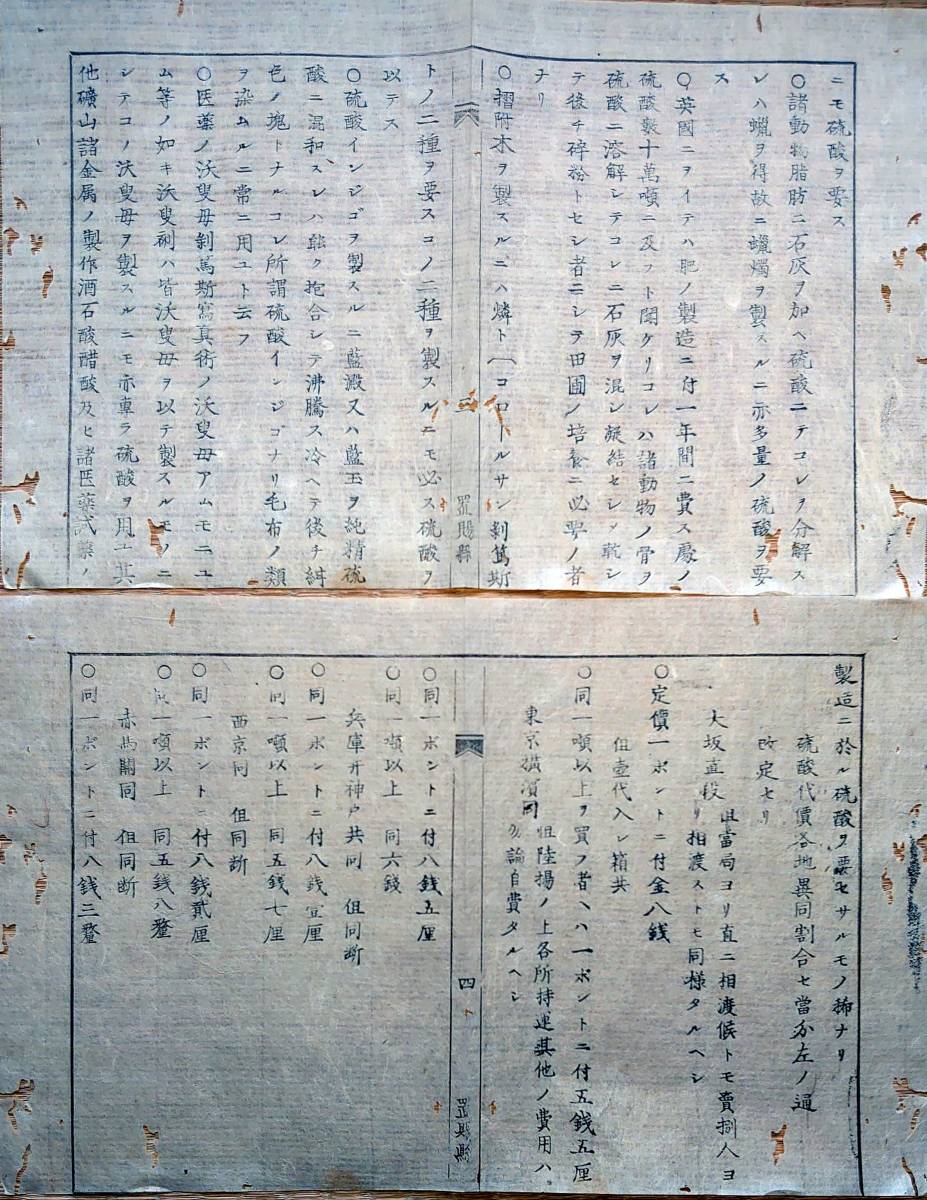 ニモ硫酸ヲ要ス
〇諸動物脂肪ニ石灰ヲ加ヘ硫酸ニテコレヲ分解ス
レハ蝋ヲ得故ニ蠟燭ヲ製スルニ亦多量ノ硫酸ヲ要
ス
〇英國ニヲイテハ肥ノ製造ニ付一年間ニ費ス處ノ
硫酸數十萬噸ニ及フト聞ケリコレハ諸動物ノ骨ヲ
硫酸ニ溶解シテコレニ石灰ヲ混シ凝結セシメ乾シ
テ後チ碎粉トセシ者ニシテ田圃ノ培養ニ必要ノ者
ナリ
〇摺附木ヲ製スルニハ燐ト〔コロールサン剝篤斯
三
罡賜縣
トノ二種ヲ要スコノ二種ヲ製スルニモ必ス硫酸ヲ
以テス
〇硫酸インジゴヲ製スルニ藍澱又ハ藍玉ヲ純精硫
酸ニ混和スレハ能ク抱合シテ沸騰ス冷ヘテ後チ紺
色ノ塊トナルコレ所謂硫酸インジゴナリ毛布ノ類
ヲ染ムルニ常ニ用ユト云フ
〇医薬ノ沃叟母剝篤斯寫真術ノ沃叟母アムモニユ
ム等ノ如キ沃叟剝ハ皆沃叟母ヲ以テ製スルモノニ
シテコノ沃叟母ヲ製スルニモ亦専ラ硫酸ヲ用ユ其
他礦山諸金属ノ製作酒石酸醋酸及ヒ諸医薬試藥ノ
製造ニ於ル硫酸ヲ要セサルモノ稀ナリ
硫酸代價各地異同割合セ當分左ノ通
改定セリ
大坂直段 但當局ヨリ直ニ相渡候トモ賣捌人ヨ
リ相渡ストモ同様タルヘシ
〇定價一ポントニ付金八銭
但壺代入レ箱共
〇同一噸以上ヲ買フ者ヘハ一ポントニ付五銭五厘
東京横濱同 但陸揚ノ上各所持運其他ノ費用ハ
勿論自費タルヘシ
四
縣
〇同一ポントニ付八銭五厘
〇同一噸以上 同六銭
兵庫并神戸共同 但同断
〇同一ポントニ付八銭壹厘
〇同一噸以上 同五銭七厘
西京同 但同断
〇同一ポントニ付八銭貳厘
〇同一噸以上 同五銭八釐
赤馬關同 但同断
〇同一ポントニ付八銭三釐